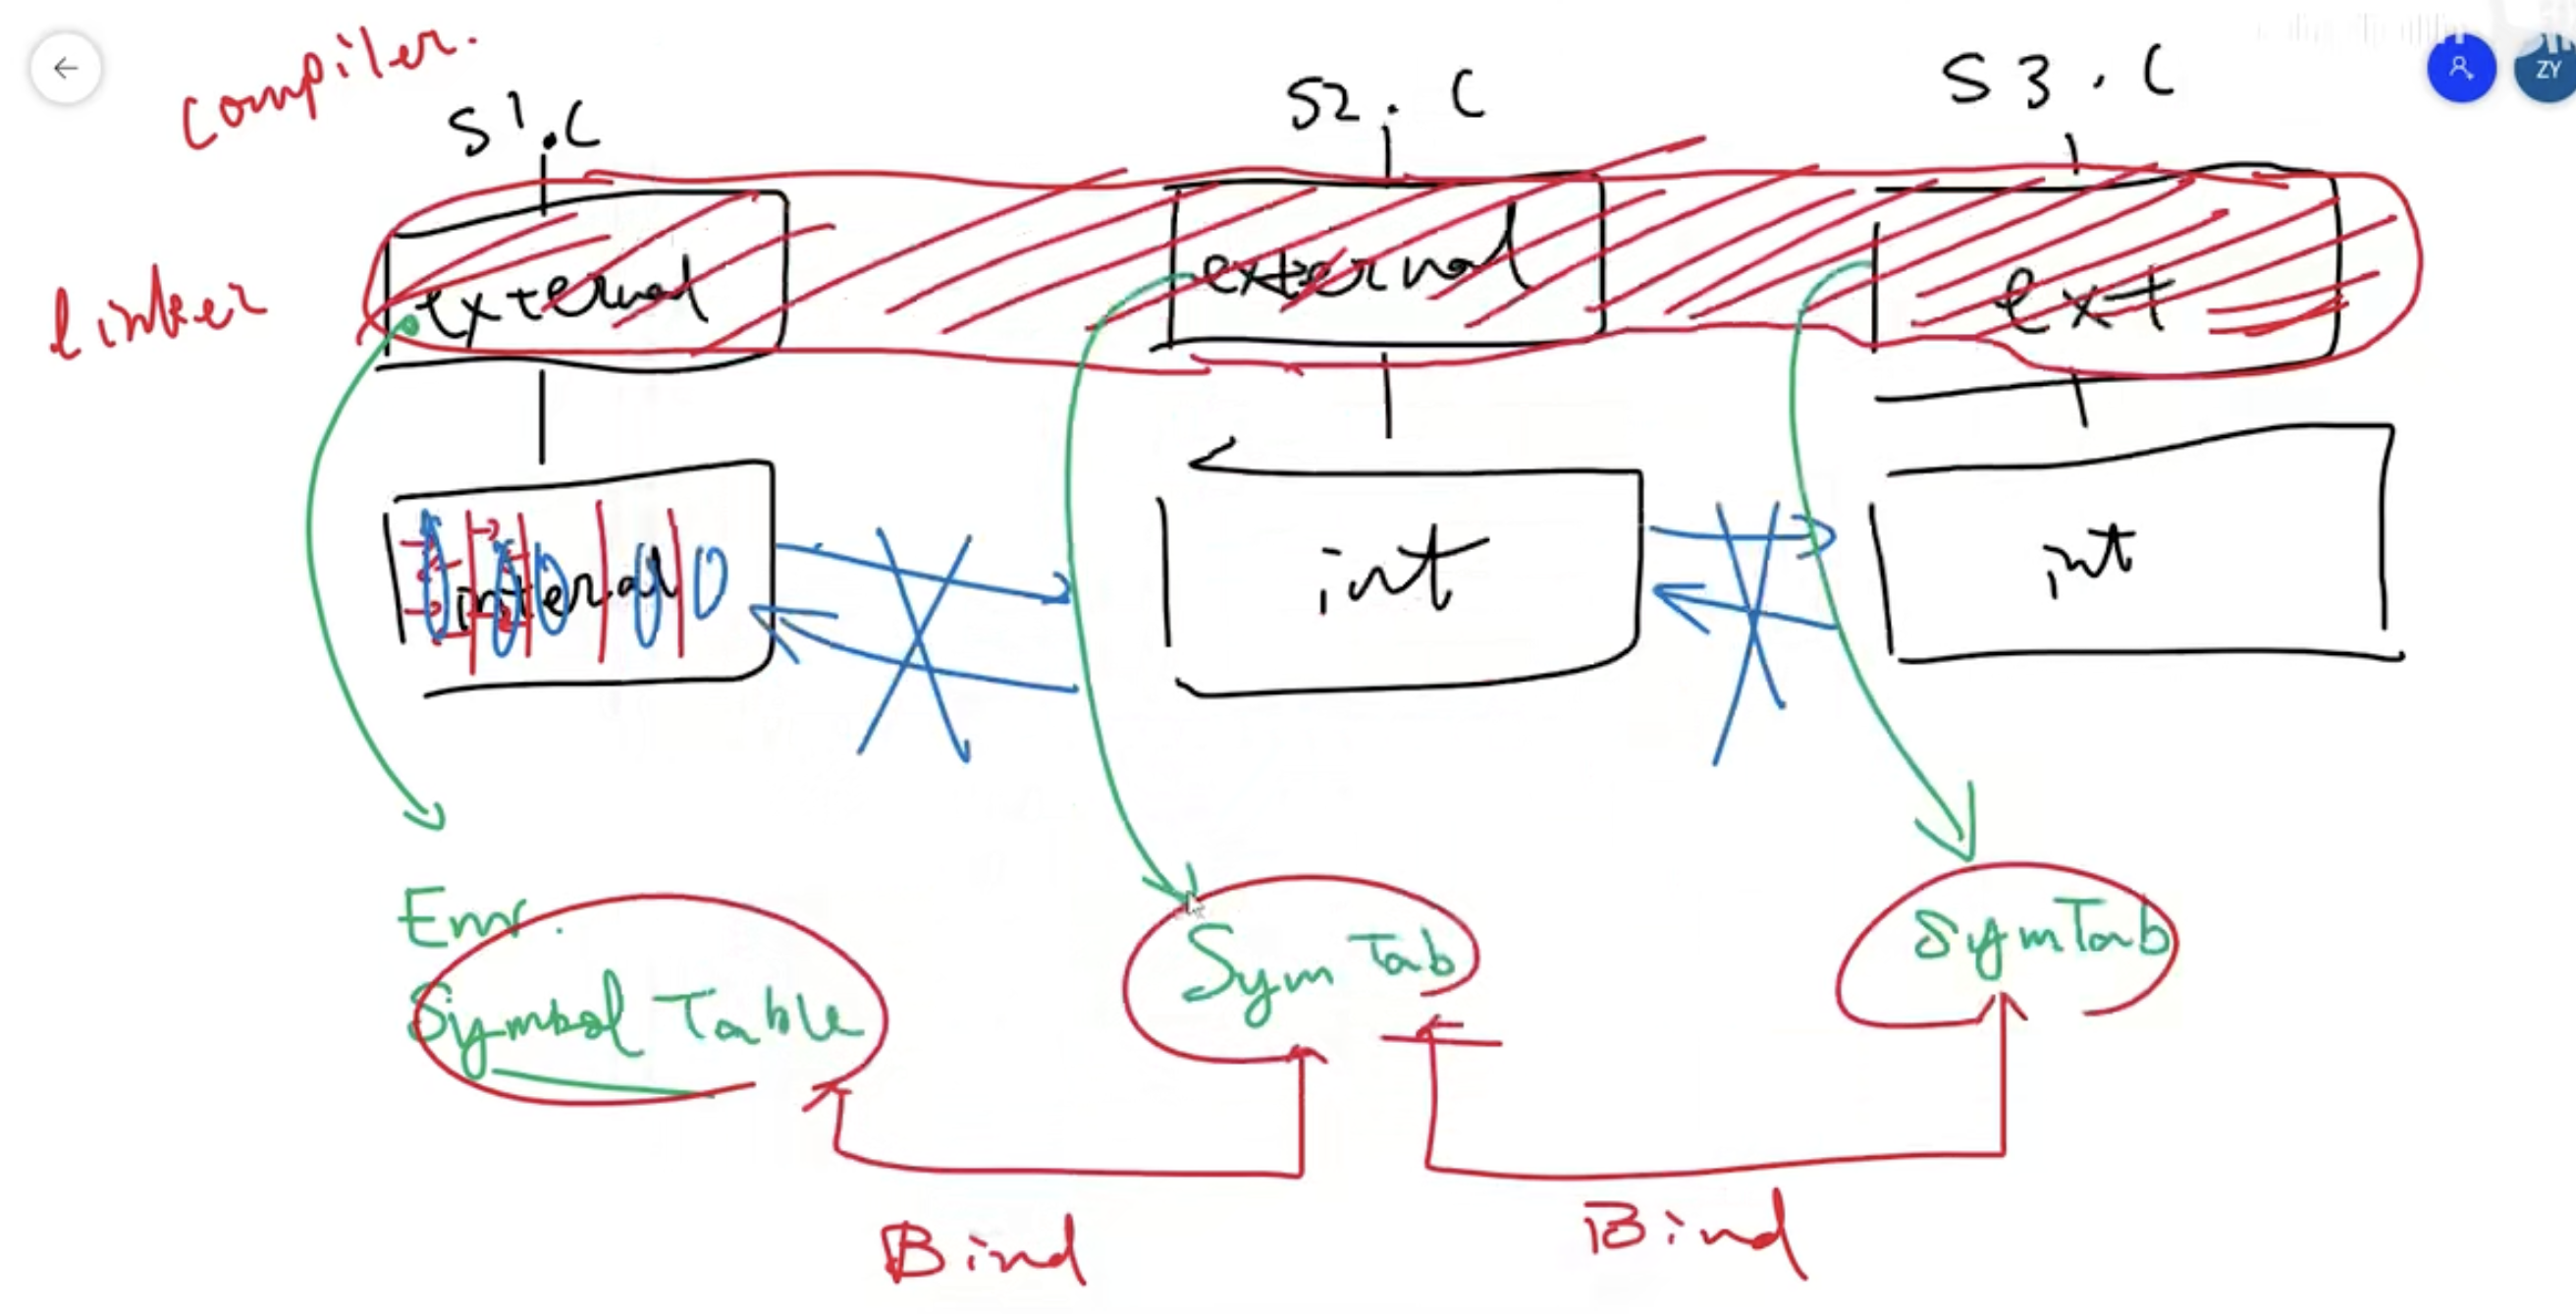 compiler.
S1.C
S2.C
S3.C
ZY
linker
external
external
ext
internal
int
int
Symbol Table
Sym Tab
Sym Tab
Bind
Bind